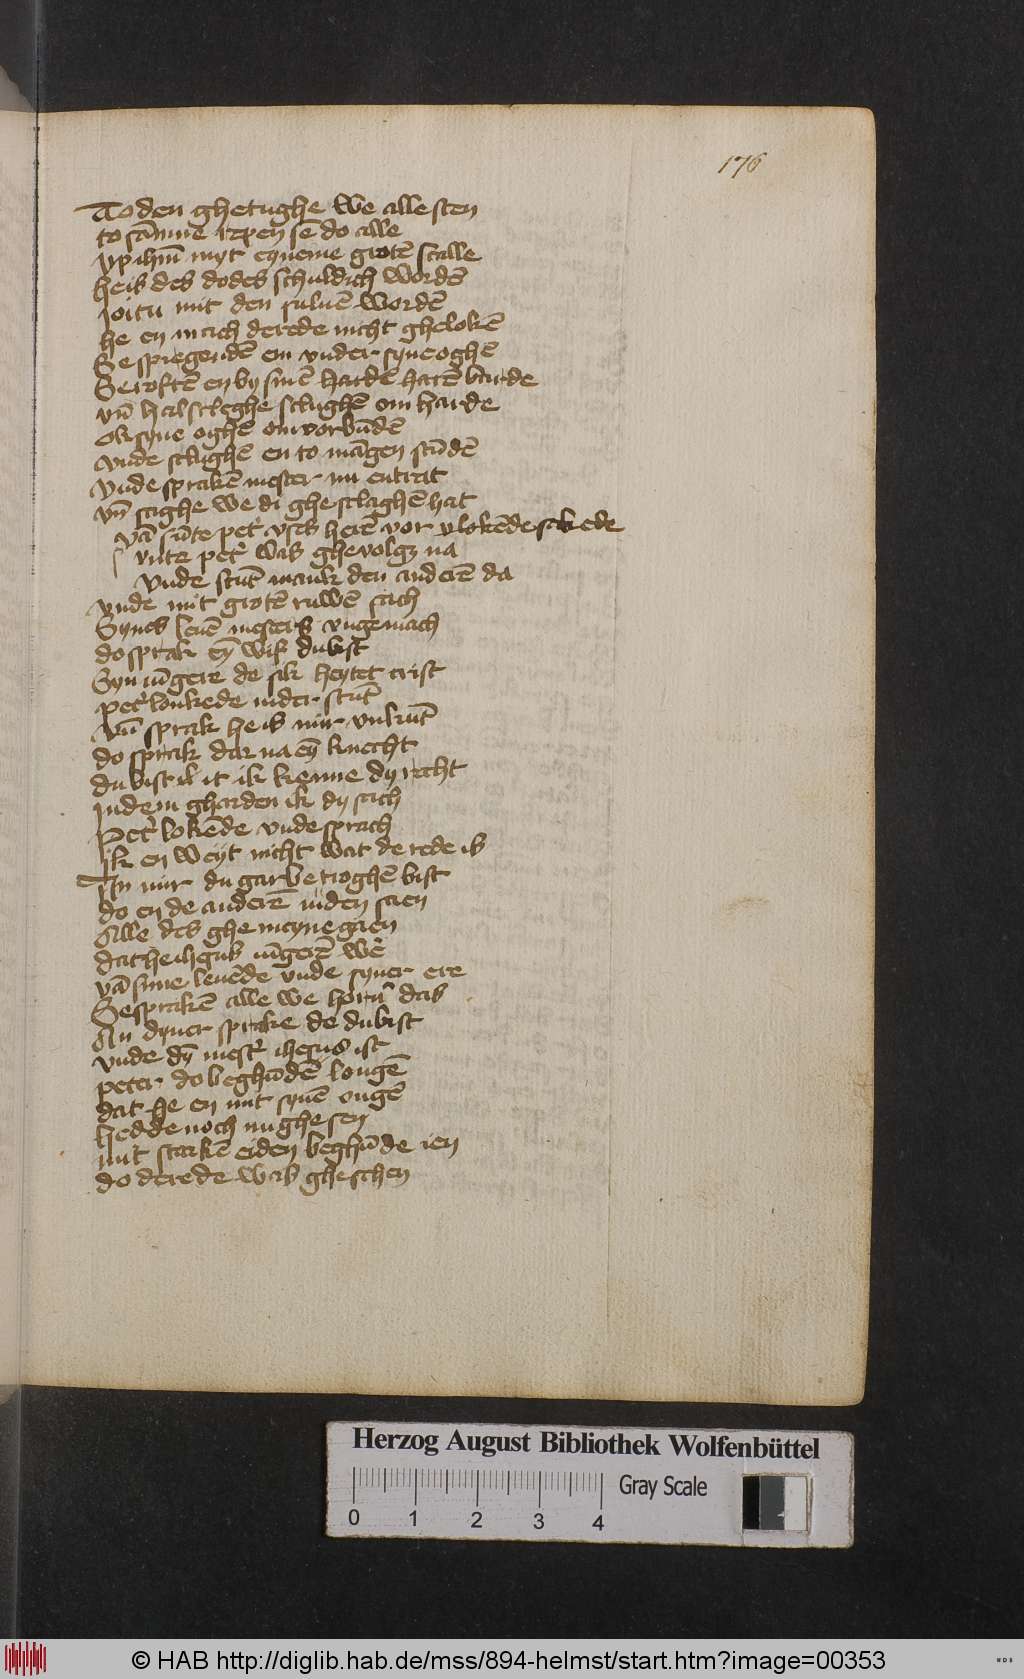 176
To den ghetughe we alle sten
to sāmne repen se do alle
vp ihm̄ myt eyneme grotē scalle
he is des dodes schuldich wordē
ioitu mit den suluē wordē
he en mach de rede nicht ghelokē
Se spiegendē em vnder syne oghē
Se roftē en by sinē hardē harē barde
vn̄ halsleghe slughē om harde
Ok syne oghē om vorbūdē
vnde slughē en to māgen stūdē
Vnde sprakē mester nu entrat
vn̄ saghe we di gheslaghē hat
Vā sūte pet' vses herē vor vlokēde sakede
vnte pet' was ghevolgꝫ na
Vnde stūt mank den anderē da
vnde mit grotē ruwē sach
Synes leuē mesters vngemach
do sprak eȳ wif du bist
Syn iūgere de sik heytet crist
pet' lonkede inder stūt
vn̄ sprak he is mir vnkūt
do sprak dar na eȳ knecht
du bist it ik kenne dy recht
In dem gharden ik dy sach
Pet' lokēde vnde sprach
ik en weyt nicht wat de rede is
An mir du gar betroghē bist
do en de anderē inden saen
Alle des ghemeyne gaen
dat he ihesus iūgerē wē
vā sime leuēde vnde syner ere
Se sprakē alle we horn das
An dyner sprake de du bist
vnde dȳ mest' ihesus ist
peter do beghūdē longē
dat he en mit synē ougē
hedde noch nughe sen
mit starkē eiden beghūde ien
do de rede was gheschen
Herzog August Bibliothek Wolfenbüttel
0 1 2 3 4 Gray Scale
© HAB http://diglib.hab.de/mss/894-helmst/start.htm?image=00353